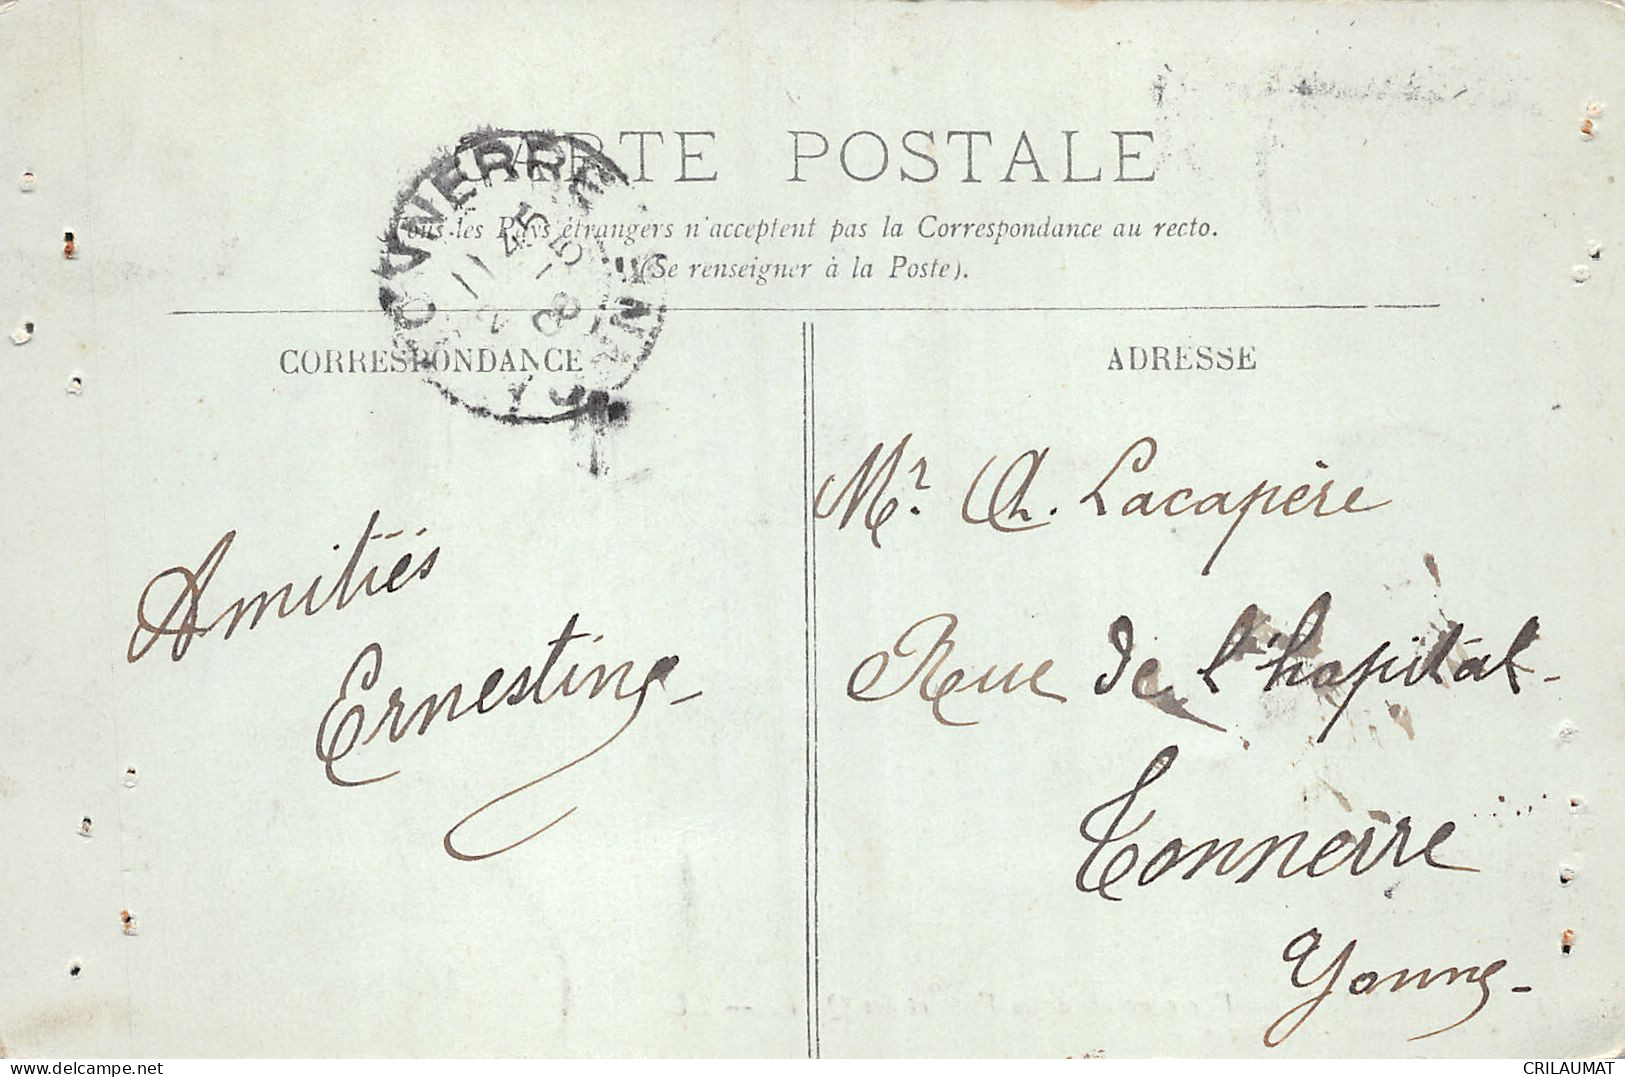 CARTE POSTALE
Tous les Pays étrangers n'acceptent pas la Correspondance au recto.
(Se renseigner à la Poste).
CORRESPONDANCE
Amitiés
Ernestine
ADRESSE
Mr. Ch. Lacapère
Rue de l'hopital
Tonnerre
Yonne
CRILAUMAT